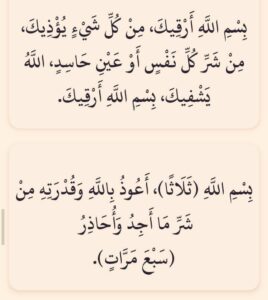 بِسْمِ اللَّهِ أَرْقِيكَ، مِنْ كُلِّ شَيْءٍ يُؤْذِيكَ،
مِنْ شَرِّ كُلِّ نَفْسٍ أَوْ عَيْنِ حَاسِدٍ، اللَّهُ
يَشْفِيكَ، بِسْمِ اللَّهِ أَرْقِيكَ.
بِسْمِ اللَّهِ (ثَلَاثًا)، أَعُوذُ بِاللَّهِ وَقُدْرَتِهِ مِنْ
شَرِّ مَا أَجِدُ وَأُحَاذِرُ
(سَبْعَ مَرَّاتٍ).